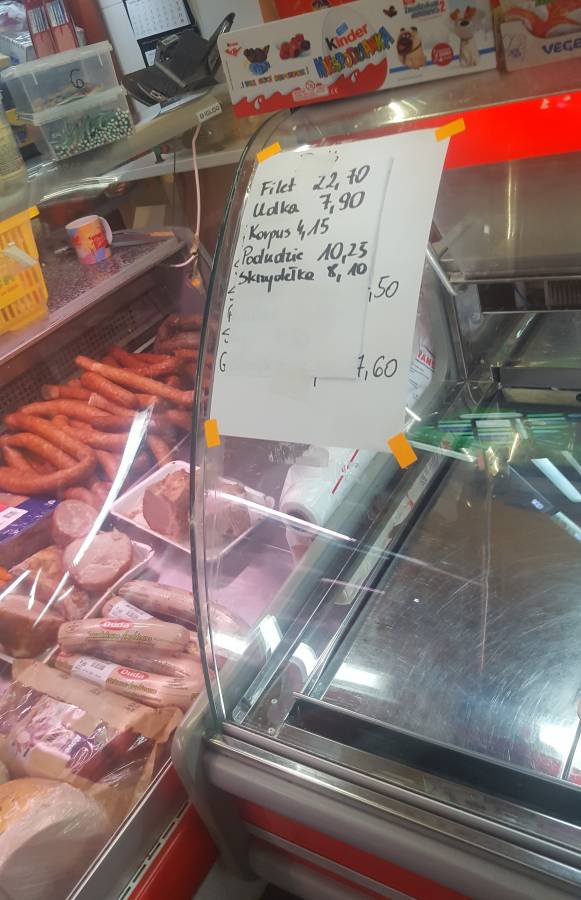 Kinder
NIESPODZIANKA
2
VEGE
IGLOO
Filet 22,70
Udka 7,90
Korpus 4,15
Podudzie 10,25
Skrzydełka 8,10
,50
G 7,60
Duda
Duda